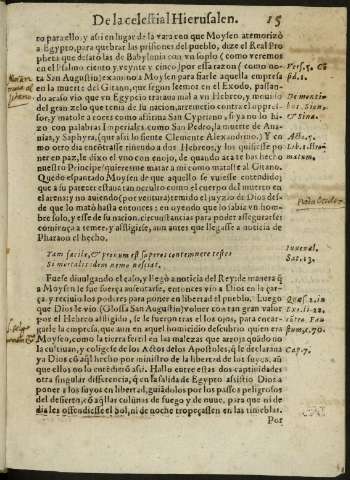 De la celestial Hierusalen. 15
to para ello: y assi en lugar de la vara con que Moysen atemorizò
a Egypto, para quebrar las prisiones del pueblo, dize el Real Pro
pheta que desato las de Babylonia con vn soplo (como veremos
en el Psalmo ciento y veynte y cinco) por essa razon (como no-
ta San Augustin) examinò a Moysen para fiarle aquella empresa
en la muerte del Gitano, que segun leemos en el Exodo, passan-
do acaso vio que vn Egypcio trataua mal a vn Hebreo, y mouido
del gran zelo que tenia, arremetio contra el oppres-
sor, y matole a cozes como affirma San Cypriano, si ya no lo hi-
zo con palabras Imperiales, como San Pedro, la muerte de Ana-
nias, y Saphyra, (que assi lo siente Clemente Alexandrino.) Y co
mo otro dia encōtrasse riñendo a dos Hebreos, y los quisiesse po
ner en paz, le dixo el vno con enojo, de quando aca te has hecho
nuestro Principe? quieresme matar a mi como mataste al Gitano.
Quedò espantado Moysen de que aquello se vuiesse entendido;
que a su parecer estaua tan oculto como el cuerpo del muerto en
el arena; y no auiendo (por ventura) temido el juyzio de Dios des-
de que lo matò hasta entonces; en oyendo que lo sabia vn hom-
bre solo, y esse de su nacion, circunstancias para poder assegurarse;
començò a temer, y afligirse, aun antes que llegasse a noticia de
Pharaon el hecho.
Tam facile, & pronum est superos contemnere testes
Si mortalis idem nemo nosciat.
Iuuenal.
Sat. 13.
Fuese diuulgando el caso, y llegò a noticia del Rey: de manera q̄
a Moysen le fue fuerça ausentarse, entonces vio a Dios en la çar-
ça, y recibio los poderes para poner en libertad el pueblo. Luego
que Dios le vio (Glossa San Augustin) boluer con tan gran valor
por el Hebreo afligido, se le fueron tras el los ojos, para encar-
garle la empresa, que aun en aquel homicidio descubrio quien era
Moyses, como la tierra fertil en las malezas que arroja quādo no
la cultiuan, y colígese de los Actos delos Apostoles, q̄ le declararia
ya Dios cō aq̄l hecho por ministro de la libertad de los suyos, aū
que ellos no lo entēdierō assi. Hallo entre estas dos captiuidades
otra singular differencia, q̄ en la salida de Egypto assistio Dios a
poner a los suyos en libertad, guiādolos por los passos peligrosos
del desierto, cō aq̄llas colūnas de fuego y de nuue, para que ni de
dia les offendiesse el Sol, ni de noche tropeçassen en las tinieblas.
Por
Cap. 7.